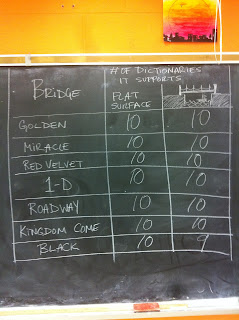 # OF DICTIONARIES
IT SUPPORTS
BRIDGE
FLAT
SURFACE
GOLDEN 10 10
MIRACLE 10 10
RED VELVET 10 10
1-D 10 10
ROADWAY 10 10
KINGDOM COME 10 10
BLACK 10 9